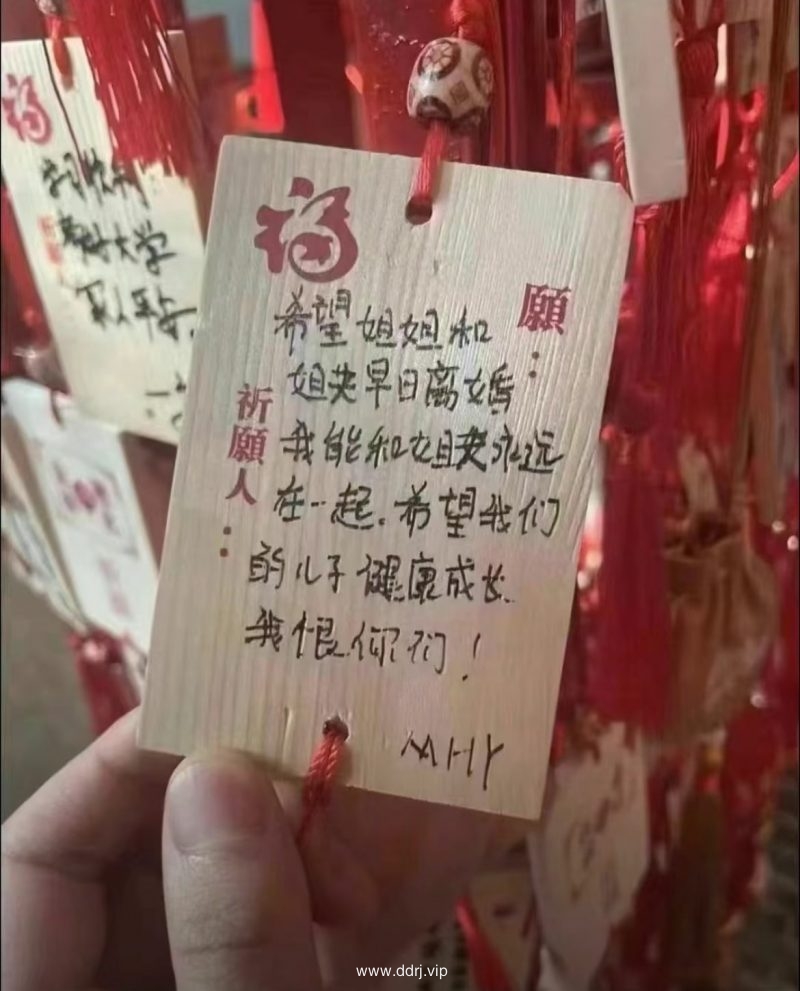 福
願：
希望姐姐和
姐夫早日离婚
我能和姐夫永远
在一起.希望我们
的儿子健康成长.
我恨你们！
MHY
祈願人：
福
大学
www.ddrj.vip